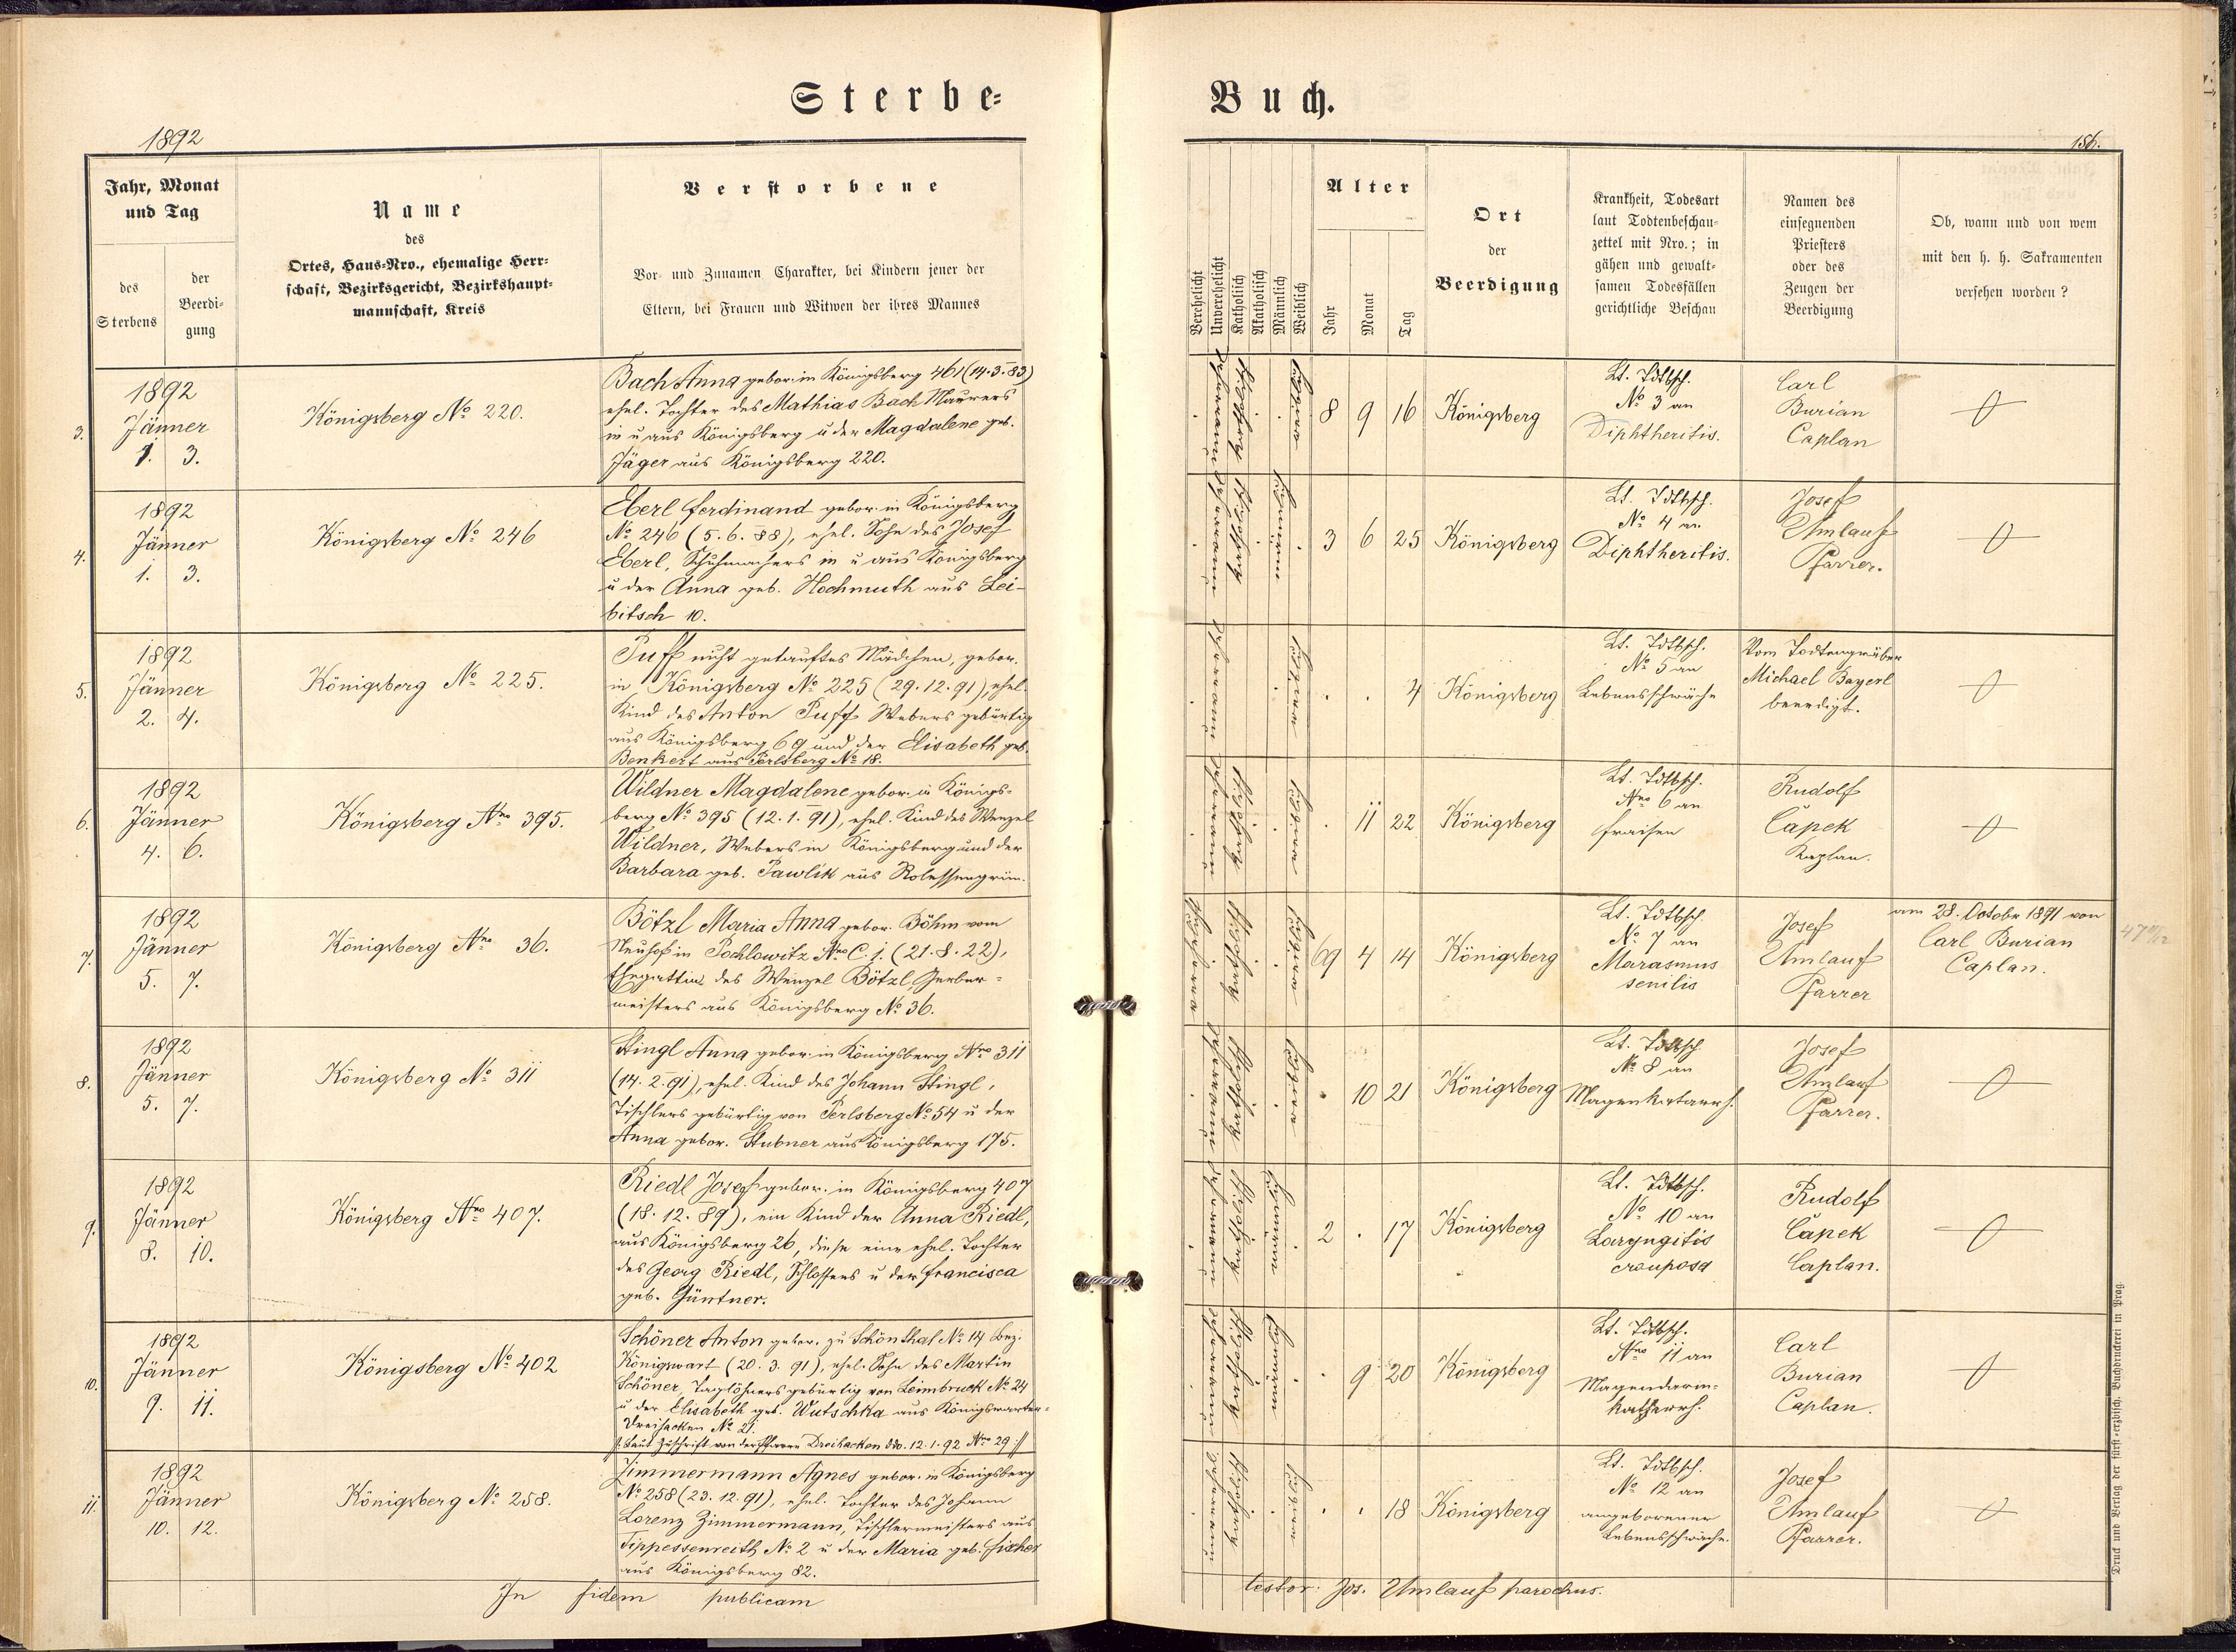 Sterbe-
Buch.
1892
156.
Jahr, Monat
und Tag
des
Sterbens
der
Beerdi-
gung
Name
des
Ortes, Haus-Nro., ehemalige Herr-
schaft, Bezirksgericht, Bezirkshaupt-
mannschaft, Kreis
Verstorbene
Vor- und Zunamen Charakter, bei Kindern jener der
Eltern, bei Frauen und Witwen der ihres Mannes
Verehelicht
Unverehelicht
Katholisch
Akatholisch
Männlich
Weiblich
Alter
Jahr
Monat
Tag
Ort
der
Beerdigung
Krankheit, Todesart
laut Todtenbeschau-
zettel mit Nro.; in
gähen und gewalt-
samen Todesfällen
gerichtliche Beschau
Namen des
einsegnenden
Priesters
oder des
Zeugen der
Beerdigung
Ob, wann und von wem
mit den h. h. Sakramenten
versehen worden?
3.
1892
Jänner
1. 3.
Königsberg No 220.
Bach Anna gebor. in Königsberg 461 (14.3.83)
ehel. Tochter des Mathias Bach Maurers
in u aus Königsberg u der Magdalene geb.
Jäger aus Königsberg 220.
unverehel.
katholisch
weiblich
8 9 16
Königsberg
Lt. Tdtbsch.
No 3 an
Diphtheritis.
Carl
Burian
Caplan
4.
1892
Jänner
1. 3.
Königsberg No 246
Eberl Ferdinand gebor. in Königsberg
No 246 (5.6.88), ehel. Sohn des Josef
Eberl, Schuhmachers in u aus Königsberg
u der Anna geb. Hochmuth aus Lei-
bitsch 10.
katholisch
männlich
3 6 25
Königsberg
Lt. Tdtbsch.
No 4 an
Diphtheritis.
Josef
Umlauf
Pfarrer.
5.
1892
Jänner
2. 4.
Königsberg No 225.
Puff nicht getauftes Mädchen, gebor.
in Königsberg No 225 (29.12.91), ehel.
Kind des Anton Puff Webers gebürtig
aus Königsberg 69 und der Elisabeth geb.
Benkert aus Perlsberg No 18.
weiblich
4
Königsberg
Lt. Tdtbsch.
No 5 an
Lebensschwäche
Vom Todtengräber
Michael Bayerl
beerdigt.
6.
1892
Jänner
4. 6.
Königsberg Nro 395.
Wildner Magdalene gebor. in Königs-
berg No 395 (12.1.91), ehel. Kind des Wenzel
Wildner, Webers in Königsberg und der
Barbara geb. Pawlik aus Rolessengrün.
katholisch
weiblich
11 22
Königsberg
Lt. Tdtbsch.
Nro 6 an
Fraisen
Rudolf
Čapek
Kaplan.
7.
1892
Jänner
5. 7.
Königsberg Nro 36.
Bötzl Maria Anna gebor. Böhm vom
Neuhof in Pochlowitz Nro C. 1. (21.8.22),
Ehegattin des Wenzel Bötzl, Gerber-
meisters aus Königsberg No 36.
katholisch
weiblich
69 4 14
Königsberg
Lt. Tdtbsch.
No 7 an
Marasmus
senilis
Josef
Umlauf
Pfarrer
am 28. October 1891 von
Carl Burian
Caplan.
8.
1892
Jänner
5. 7.
Königsberg No 311
Stingl Anna gebor. in Königsberg Nro 311
(14.2.91), ehel. Kind des Johann Stingl,
Tischlers gebürtig von Perlsberg No 54 u der
Anna gebor. Stubner aus Königsberg 175.
katholisch
weiblich
10 21
Königsberg
Lt. Tdtbsch
No 8 an
Magenkatarrh.
Josef
Umlauf
Pfarrer.
9.
1892
Jänner
8. 10.
Königsberg Nro 407.
Riedl Josef gebor. in Königsberg 407
(18.12.89), ein Kind der Anna Riedl,
aus Königsberg 26, diese eine ehel. Tochter
des Georg Riedl, Schlossers u der Francisca
geb. Güntner.
katholisch
männlich
2 . 17
Königsberg
Lt. Tdtbsch.
No 10 an
Laryngitis
crouposa
Rudolf
Čapek
Caplan.
10.
1892
Jänner
9. 11.
Königsberg No 402
Schöner Anton gebor. zu Schönthal No 14 Bez.
Königswart (20.3.91), ehel. Sohn des Martin
Schöner, Taglöhners gebürtig von Leimbruck No 24
u der Elisabeth geb. Wutschka aus Königswarter-
Dreihacken No 21.
/: Laut Zuschrift von der Pfarre Dreihacken ddo. 12.1.92 Nro 29 :/
katholisch
männlich
9 20
Königsberg
Lt. Tdtbsch.
Nro 11 an
Magendarm-
katharrh.
Carl
Burian
Caplan.
11.
1892
Jänner
10. 12.
Königsberg No 258.
Zimmermann Agnes gebor. in Königsberg
No 258 (23.12.91), ehel. Tochter des Johann
Lorenz Zimmermann, Tischlermeisters aus
Tippessenreith No 2 u der Maria geb. Fischer
aus Königsberg 82.
katholisch
weiblich
18
Königsberg
Lt. Tdtbsch.
No 12 an
angeborener
Lebensschwäche.
Josef
Umlauf
Pfarrer.
In fidem publicam
testor. Jos. Umlauf parochus.
Druck und Verlag der fürst-erzbisch. Buchdruckerei in Prag.